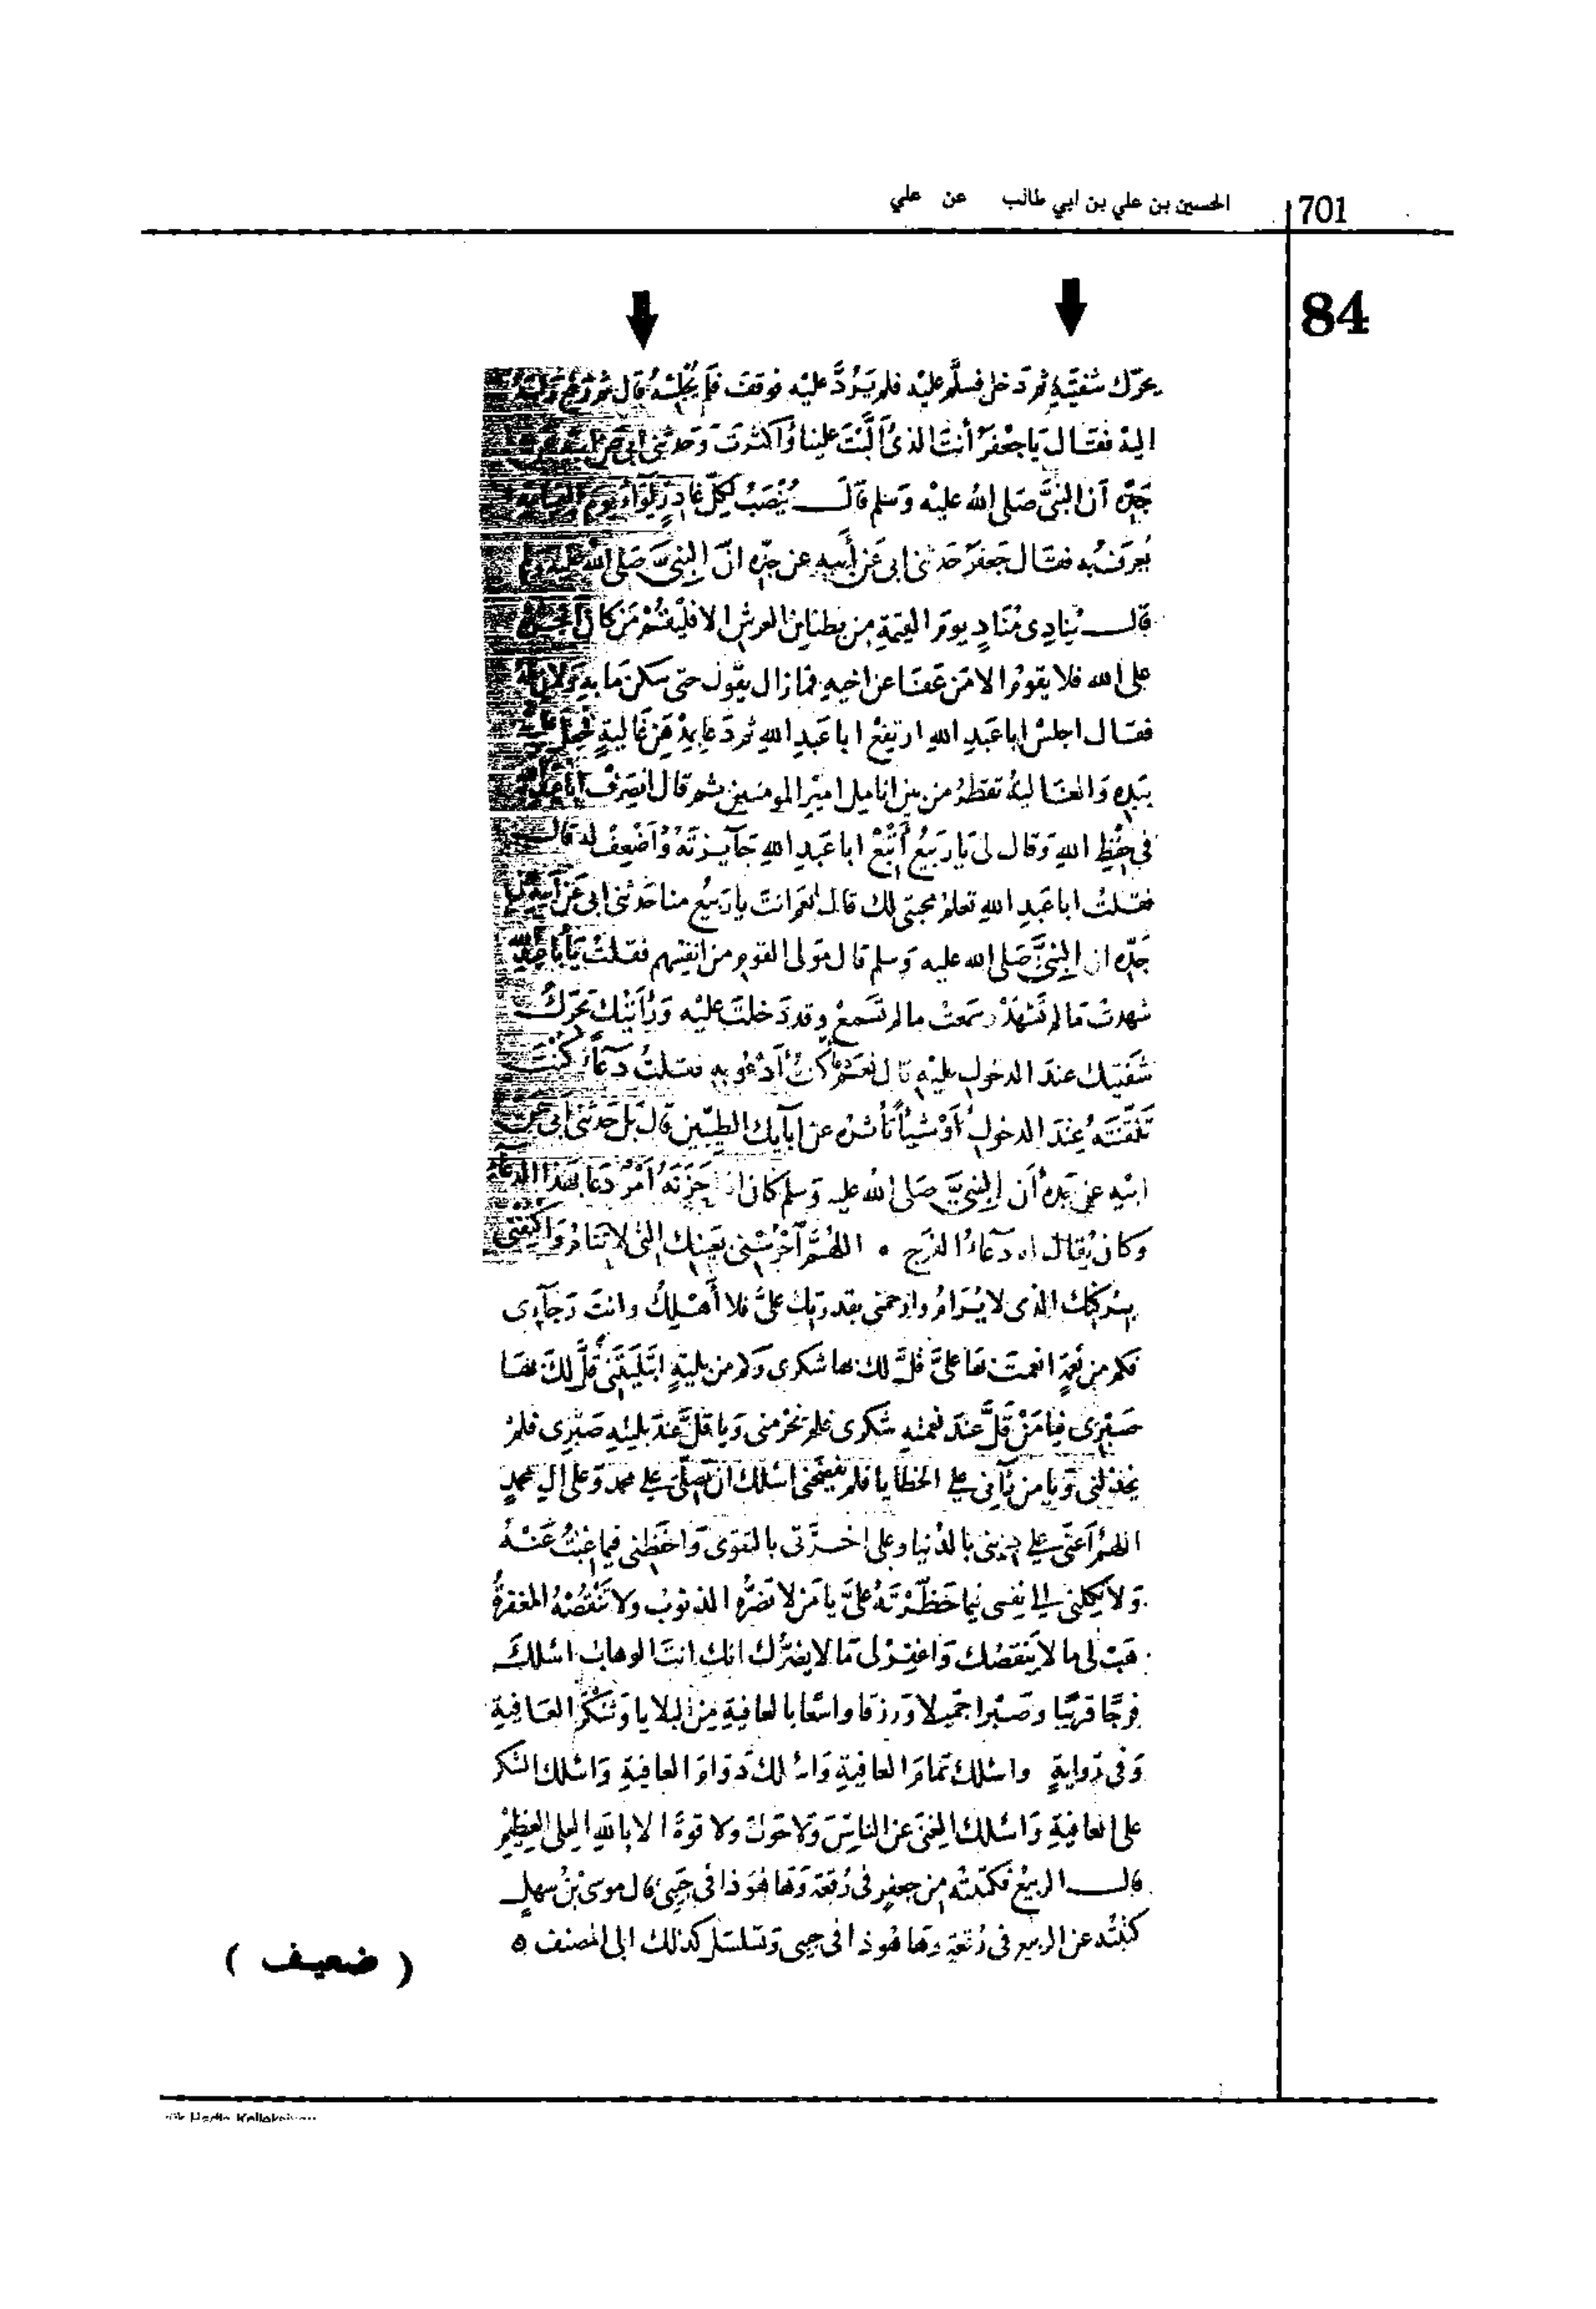 701
الحسين بن علي بن ابي طالب عن علي
84
يحرّك شفتيه ثم دخل فسلّم عليه فلم يردّ عليه فوقف فلم يجلسه قال ثم رفع
اليه فقال يا جعفر أنت الذى ألّبت علينا وأكثرت وحدثنى ابى عن
جدّه أن النبىّ صلى الله عليه وسلم قال ينصب لكلّ غادر لواء يوم القيامة
يعرف به فقال جعفر حدثنى ابى عن أبيه عن جدّه انّ النبىّ صلى الله عليه
قال ينادى مناد يوم القيمة من بطنان العرش الا فليقم من كان
على الله فلا يقوم الا من عفا عن اخيه فما زال يقول حتى سكن ما به ولان
فقال اجلس ابا عبد الله ارتفع ابا عبد الله ثم دعا بمدهن غالية
بيده والغالية تقطر من بين انامل امير المومنين ثم قال انصرف ابا عبد
فى حفظ الله وقال لى يا ربيع أتبع ابا عبد الله جآيزته وأضعف له قال
فقلت ابا عبد الله تعلم محبتى لك قال نعم انت يا ربيع منا حدثنى ابى عن ابيه عن
جدّه ان النبىّ صلى الله عليه وسلم قال مولى القوم من انفسهم فقلت يأبا عبد
شهدت ما لم تشهد وسمعت ما لم تسمع وقد دخلت عليه ورأيتك تحرّك
شفتيك عند الدخول عليه قال نعم دعآء كنت أدعو به فقلت دعآء كنت
تلقّنته عند الدخول أو شيأ تأثره عن آبآيك الطيبين قال بل حدثنى ابى عن
ابيه عن جده أن النبىّ صلى الله عليه وسلم كان اذا حزنه أمر دعا بهذا الدعآء
وكان يقال له دعآء الفرج ٠ اللهمّ آحرسنى بعينك التى لا تنام واكنفنى
بركنك الذى لا يرام وارحمنى بقدرتك علىّ فلا أهلك وانت رجآءى
فكم من نعمة انعمت بها علىّ قلّ لك بها شكرى وكم من بلية ابتليتنى قلّ لك بها
صبرى فيا من قلّ عند نعمته شكرى فلم يحرمنى ويا من قلّ عند بليته صبرى فلم
يخذلنى ويا من رآنى على الخطايا فلم يفضحنى اسئلك ان تصلّى على محمد وعلى ال محمد
اللهم أعنّى على دينى بالدنيا وعلى اخرتى بالتقوى واحفظنى فيما غبت عنه
ولا تكلنى الى نفسى فيما حظّرته علىّ يا من لا تضرّه الذنوب ولا تنقصه المغفرة
هب لى ما لا ينقصك واغفر لى ما لا يضرّك انك انت الوهاب اسئلك
فرجا قريبا وصبرا جميلا ورزقا واسعا بالعافية من البلايا وشكر العافية
وفى رواية واسئلك تمام العافية واسئلك دوام العافية واسئلك الشكر
على العافية واسئلك الغنى عن الناس ولا حول ولا قوة الا بالله العلى العظيم
قال الربيع فكتبته من جعفر فى رقعة وها هو ذا فى جيبى قال موسى بن سهل
كتبته عن الربيع فى رقعة وها هو ذا فى جيبى وتسلسل كذلك الى المصنف ه
( ضعيف )